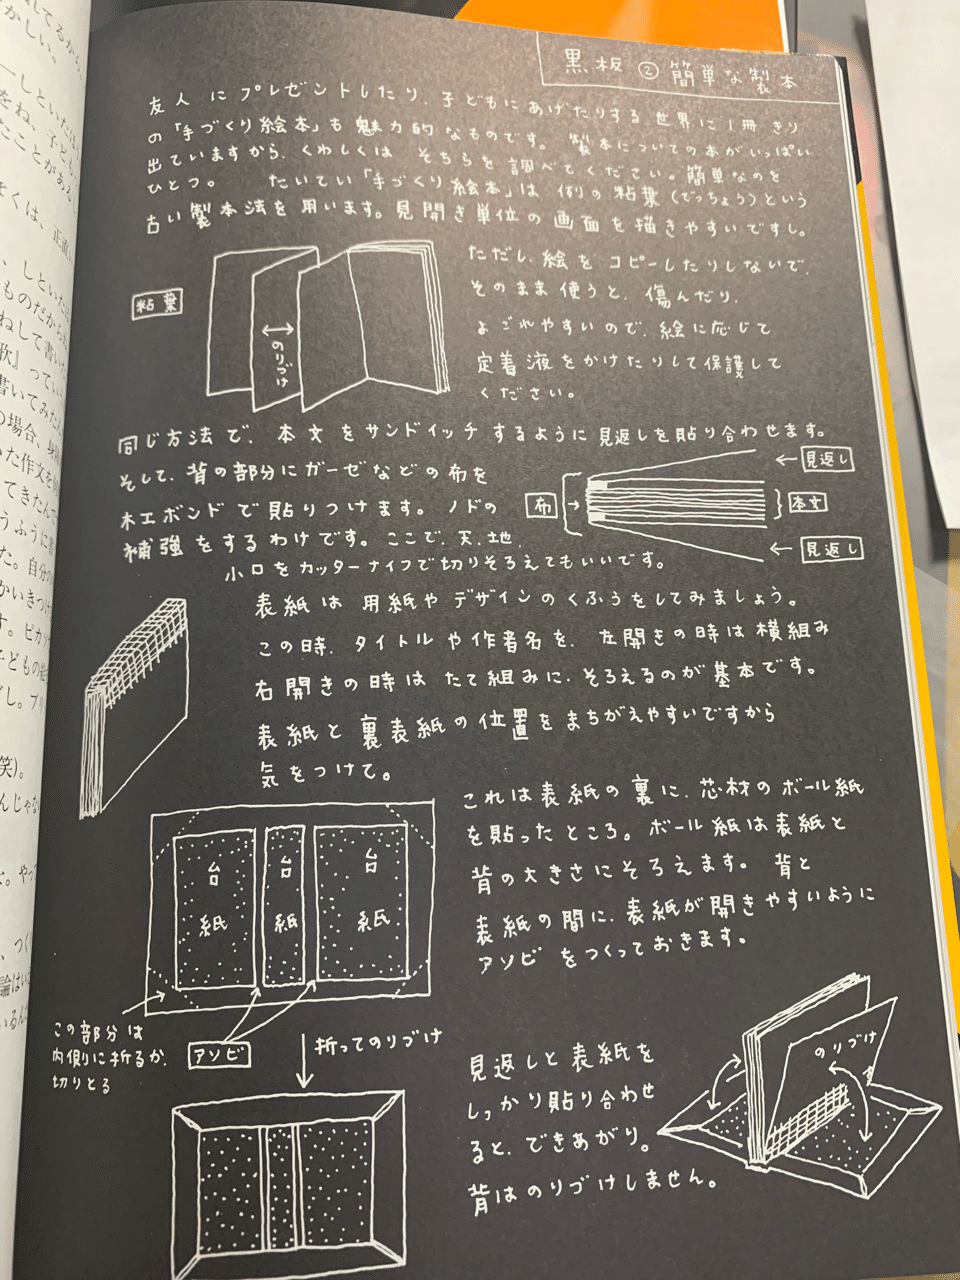 黒板②簡単な製本
友人にプレゼントしたり子どもにあげたりする世界に1冊きり
の「手づくり絵本」も魅力的なものです。製本についての本がいっぱい
出ていますから、くわしくはそちらを調べてください。簡単なのを
ひとつ。 たいてい「手づくり絵本」は例の粘葉(でっちょう)という
古い製本法を用います。見開き単位の画面を描きやすいですし。
粘葉
のりづけ
ただし、絵をコピーしたりしないで、
そのまま使うと、傷んだり、
よごれやすいので、絵に応じて
定着液をかけたりして保護して
ください。
同じ方法で、本文をサンドイッチするように見返しを貼り合わせます。
そして、背の部分にガーゼなどの布を
木工ボンドで貼りつけます。ノドの
補強をするわけです。ここで、天、地
小口をカッターナイフで切りそろえてもいいです。
布
見返し
本文
見返し
表紙は用紙やデザインのくふうをしてみましょう。
この時、タイトルや作者名を、左開きの時は横組み
右開きの時はたて組みに、そろえるのが基本です。
表紙と裏表紙の位置をまちがえやすいですから
気をつけて。
台紙
台紙
台紙
これは表紙の裏に、芯材のボール紙
を貼ったところ。ボール紙は表紙と
背の大きさにそろえます。背と
表紙の間に、表紙が開きやすいように
アソビをつくっておきます。
この部分は
内側に折るか、
切りとる
アソビ
折ってのりづけ
見返しと表紙を
しっかり貼り合わせ
ると、できあがり。
背はのりづけしません。
のりづけ